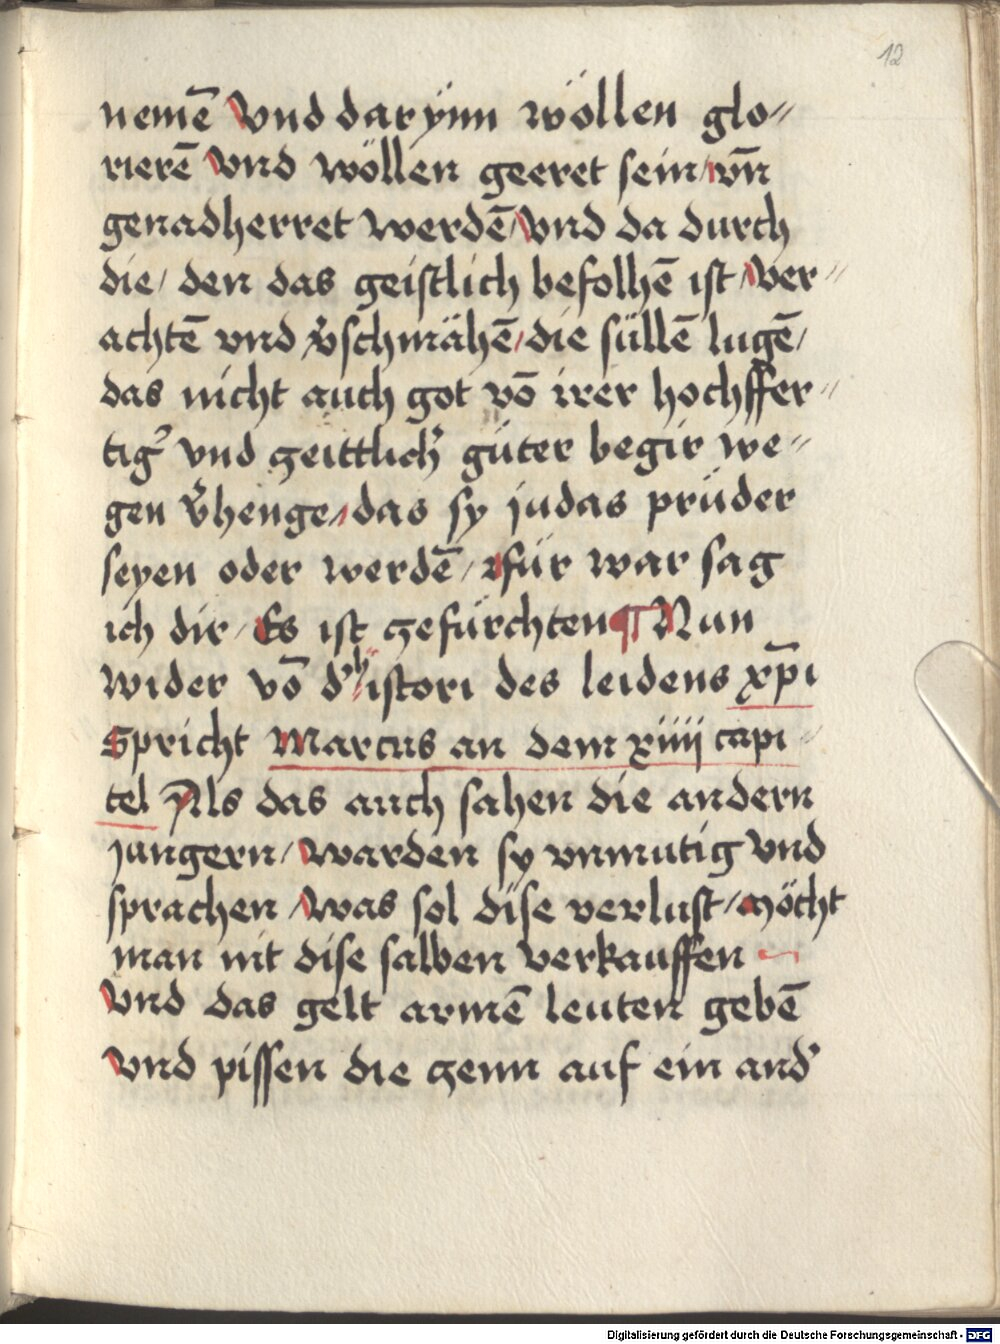 12
nemē Vnd darÿnn wöllen glo⸗
rierē Vnd wöllen geeret sein/ vn̄
genadherret werdē/ Vnd da durch
die/ den das geistlich befolhē ist/ Ver⸗
achtē vnd v̾schmähē/ die süllē lugē/
das nicht auch got vō irer hochffer⸗
tig᷒ vnd zeittlich᷒ güter begir we⸗
gen v̾henge/ das sy judas prüder
seyen oder werdē/ für war sag
ich dir/ Es ist zefürchten ¶ Nun
wider vō d᷒ hÿstori des leidens xp̄i
Spricht Marcus an dem xiiii capi⸗
tel Als das auch sahen die andern
jungern/ Warden sy vnmutig Vnd
sprachen/ Was sol dise verlust/ Möcht
man nit dise salben verkauffen
Vnd das gelt armē leuten gebē
Vnd pissen die zenn auf ein and᷒
Digitalisierung gefördert durch die Deutsche Forschungsgemeinschaft - DFG